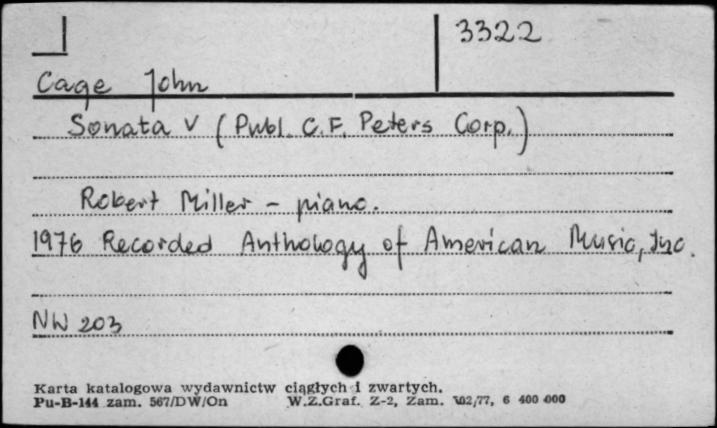 3322
Cage John
Sonata V (Publ. C.F. Peters Corp.)
Robert Miller - piano.
1976 Recorded Anthology of American Music, Inc.
NW 203
Karta katalogowa wydawnictw ciągłych i zwartych.
Pu-B-144 zam. 567/DW/On W.Z.Graf. Z-2, Zam. 6 400 000